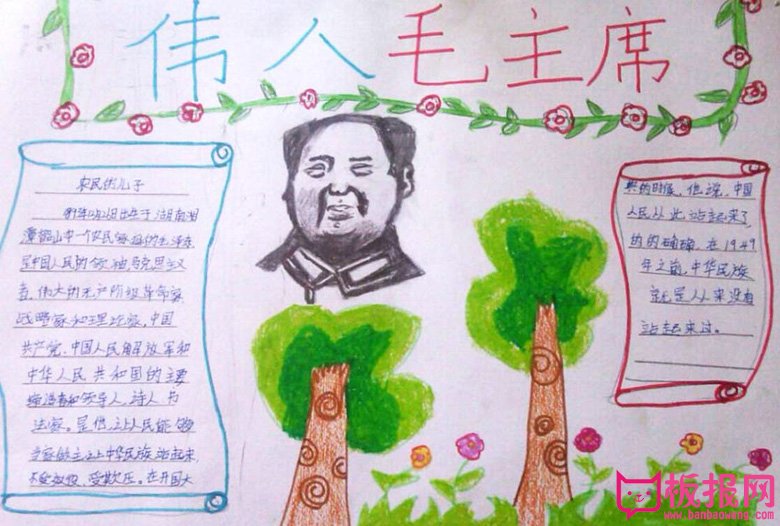 伟人毛主席
农民的儿子
出生于湖南湘
潭韶山中一个农民家庭的毛泽东
是中国人民的领袖马克思主义
者,伟大的无产阶级革命家
战略家和理论家,中国
共产党,中国人民解放军和
中华人民共和国的主要
缔造者和领导人,诗人,书
法家。是他,让人民能够
当家做主让中华民族站起来,
不受奴役、受欺压。在开国大
典的时候,他说,中国
人民从此站起来了
的的确确,在1949
年之前,中华民族
就是从来没有
站起来过。
板报网
www.banbaowang.com